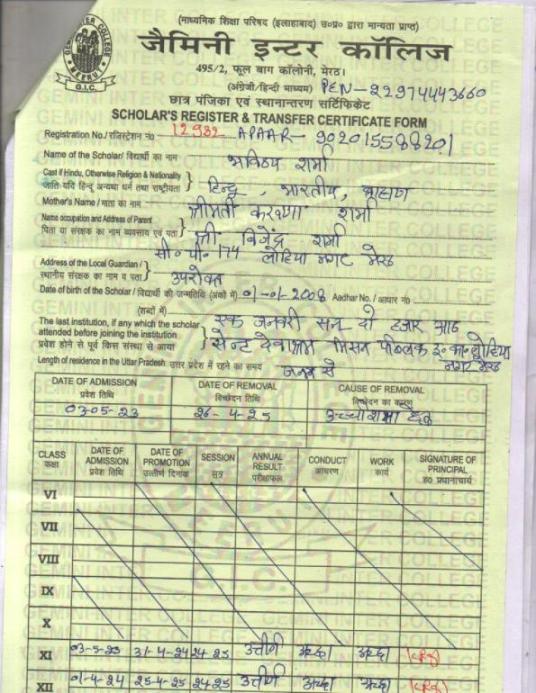 (माध्यमिक शिक्षा परिषद (इलाहाबाद) उ०प्र० द्वारा मान्यता प्राप्त)
GEMINI INTER COLLEGE
MEERUT
G.I.C.
जैमिनी इन्टर कॉलिज
495/2, फूल बाग कॉलोनी, मेरठ।
(अंग्रेजी/हिन्दी माध्यम) PEN-22974443660
छात्र पंजिका एवं स्थानान्तरण सर्टिफिकेट
SCHOLAR'S REGISTER & TRANSFER CERTIFICATE FORM
Registration No./ रजिस्ट्रेशन न० 12932 APAAR- 902015588201
Name of the Scholar/ विद्यार्थी का नाम शर्मा
Cast if Hindu, Otherwise Religion & Nationality
जाति यदि हिन्दू अन्यथा धर्म तथा राष्ट्रीयता } हिन्दू, भारतीय, ब्राह्मण
Mother's Name / माता का नाम श्रीमती करूणा शर्मा
Name occupation and Address of Parent
पिता या संरक्षक का नाम व्यवसाय एवं पता } श्री. विजेंद्र शर्मा
सी० पी० 174 लोहिया नगर मेरठ
Address of the Local Guardian /
स्थानीय संरक्षक का नाम व पता } उपरोक्त
Date of birth of the Scholar / विद्यार्थी की जन्मतिथि (अंकों में) 01-01-2008 Aadhar No./ आधार नं०
(शब्दों में) एक जनवरी सन दो हजार आठ
The last institution, if any which the scholar
attended before joining the institution
प्रवेश होने से पूर्व किस संस्था से आया } सेन्ट देवाश्रम मिशन पब्लिक इ० का० लोहिया
नगर मेरठ
Length of residence in the Uttar Pradesh उत्तर प्रदेश में रहने का समय जन्म से
DATE OF ADMISSION DATE OF REMOVAL CAUSE OF REMOVAL
प्रवेश तिथि विच्छेदन तिथि विच्छेदन का कारण
03-05-23 26-4-25 उच्चशिक्षा हेतु
CLASS DATE OF ADMISSION DATE OF PROMOTION SESSION ANNUAL RESULT CONDUCT WORK SIGNATURE OF PRINCIPAL
कक्षा प्रवेश तिथि उत्तीर्ण दिनांक सत्र परीक्षाफल आचरण कार्य ह० प्रधानाचार्य
VI
VII
VIII
IX
X
XI 03-5-23 31-4-24 24 25 उत्तीर्ण अच्छा अच्छा
XII 01-4-24 25-4-25 24 25 उत्तीर्ण अच्छा अच्छा